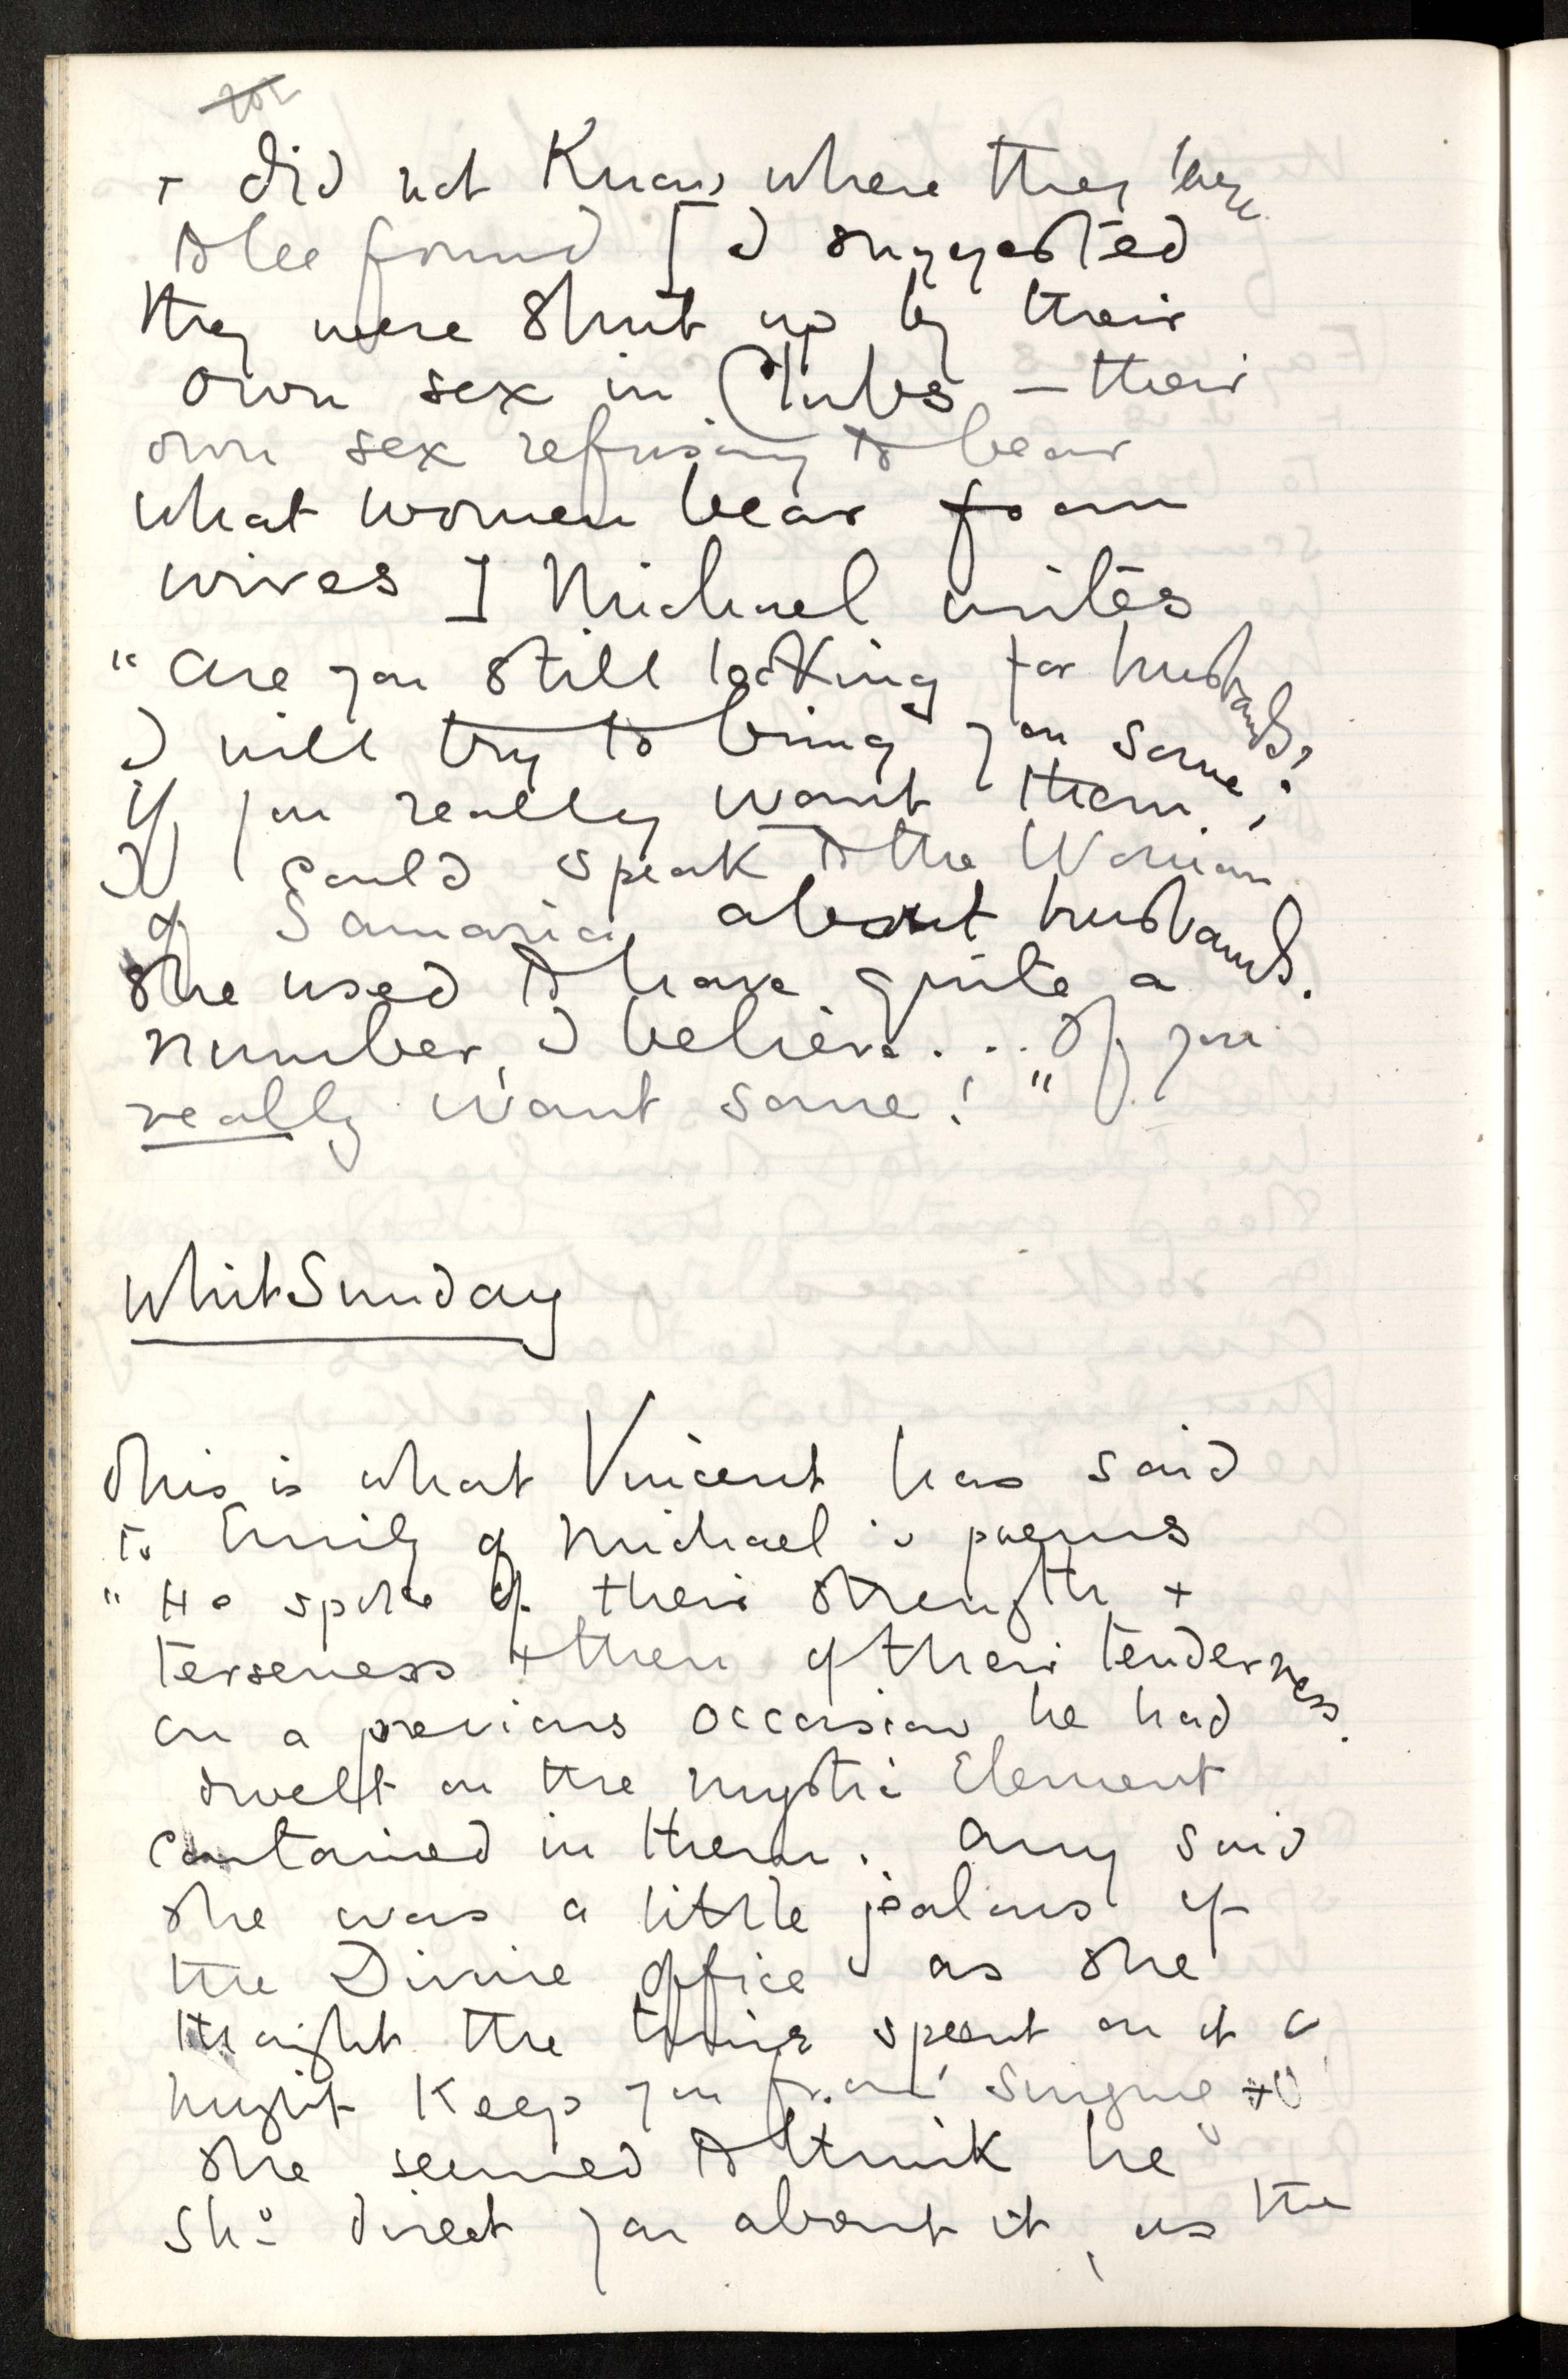 + did not Know where they were
to be found [I suggested
they were shut up by their
own sex in Clubs – their
own sex refusing to bear
what women bear from
wives] Michael writes
"Are you still looking for husbands?
I will try to bring you some;
if you really want them;
I could speak to the Woman
of Samaria about husbands.
She used to have quite a
number, I believe. . . If you
really want some!"
WhitSunday
This is what Vincent has said
to Emily of Michael's poems
"He spoke of their strength +
terseness + then of their tenderness.
on a previous occasion he had
dwelt on the mystic Element
contained in them. Amy said
she was a little jealous of
the Divine Office as she
thought the time spent on it
might Keep you from singing +
she seemed to think he
shd direct you about it, as the